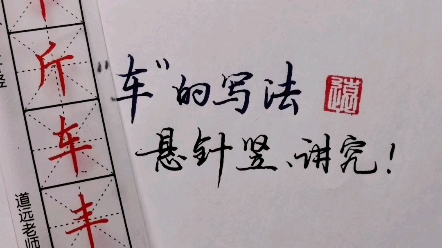 "车"的写法
悬针竖、讲究!
斤
车
丰
道远老师